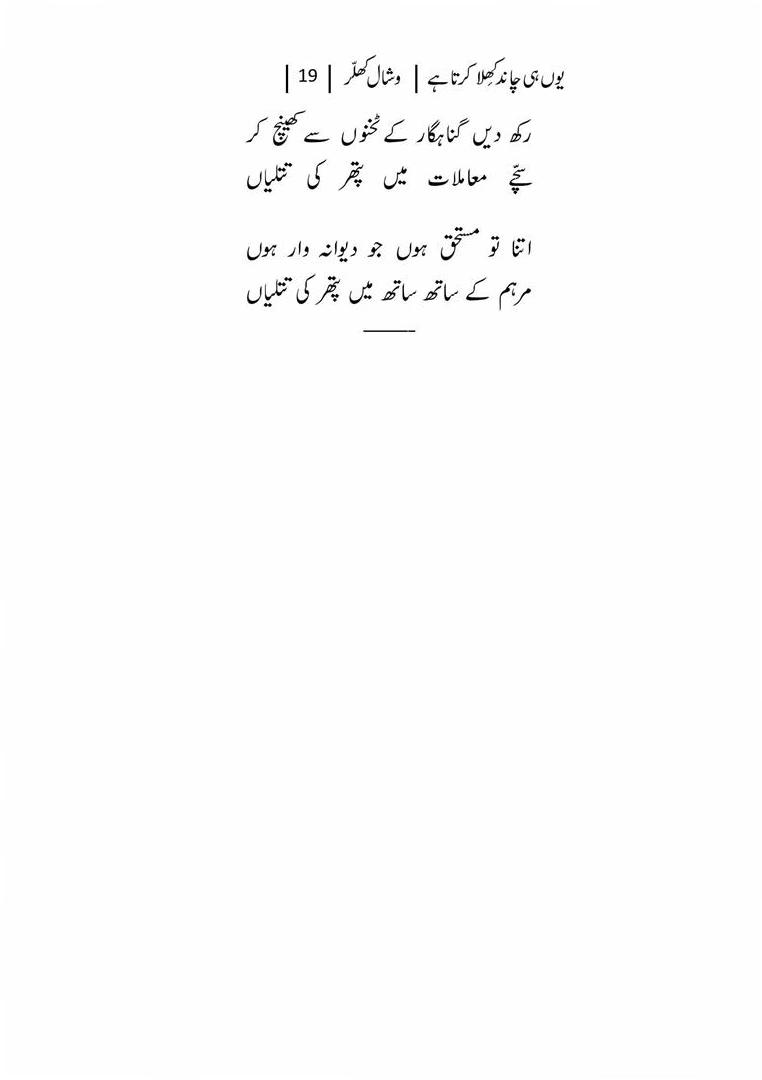 یوں ہی چاند کھِلا کرتا ہے | وشال کھلّر | 19 |
رکھ دیں گناہگار کے ٹخنوں سے کھینچ کر
سچّے معاملات میں پتھر کی تتلیاں
اتنا تو مستحق ہوں جو دیوانہ وار ہوں
مرہم کے ساتھ ساتھ میں پتھر کی تتلیاں